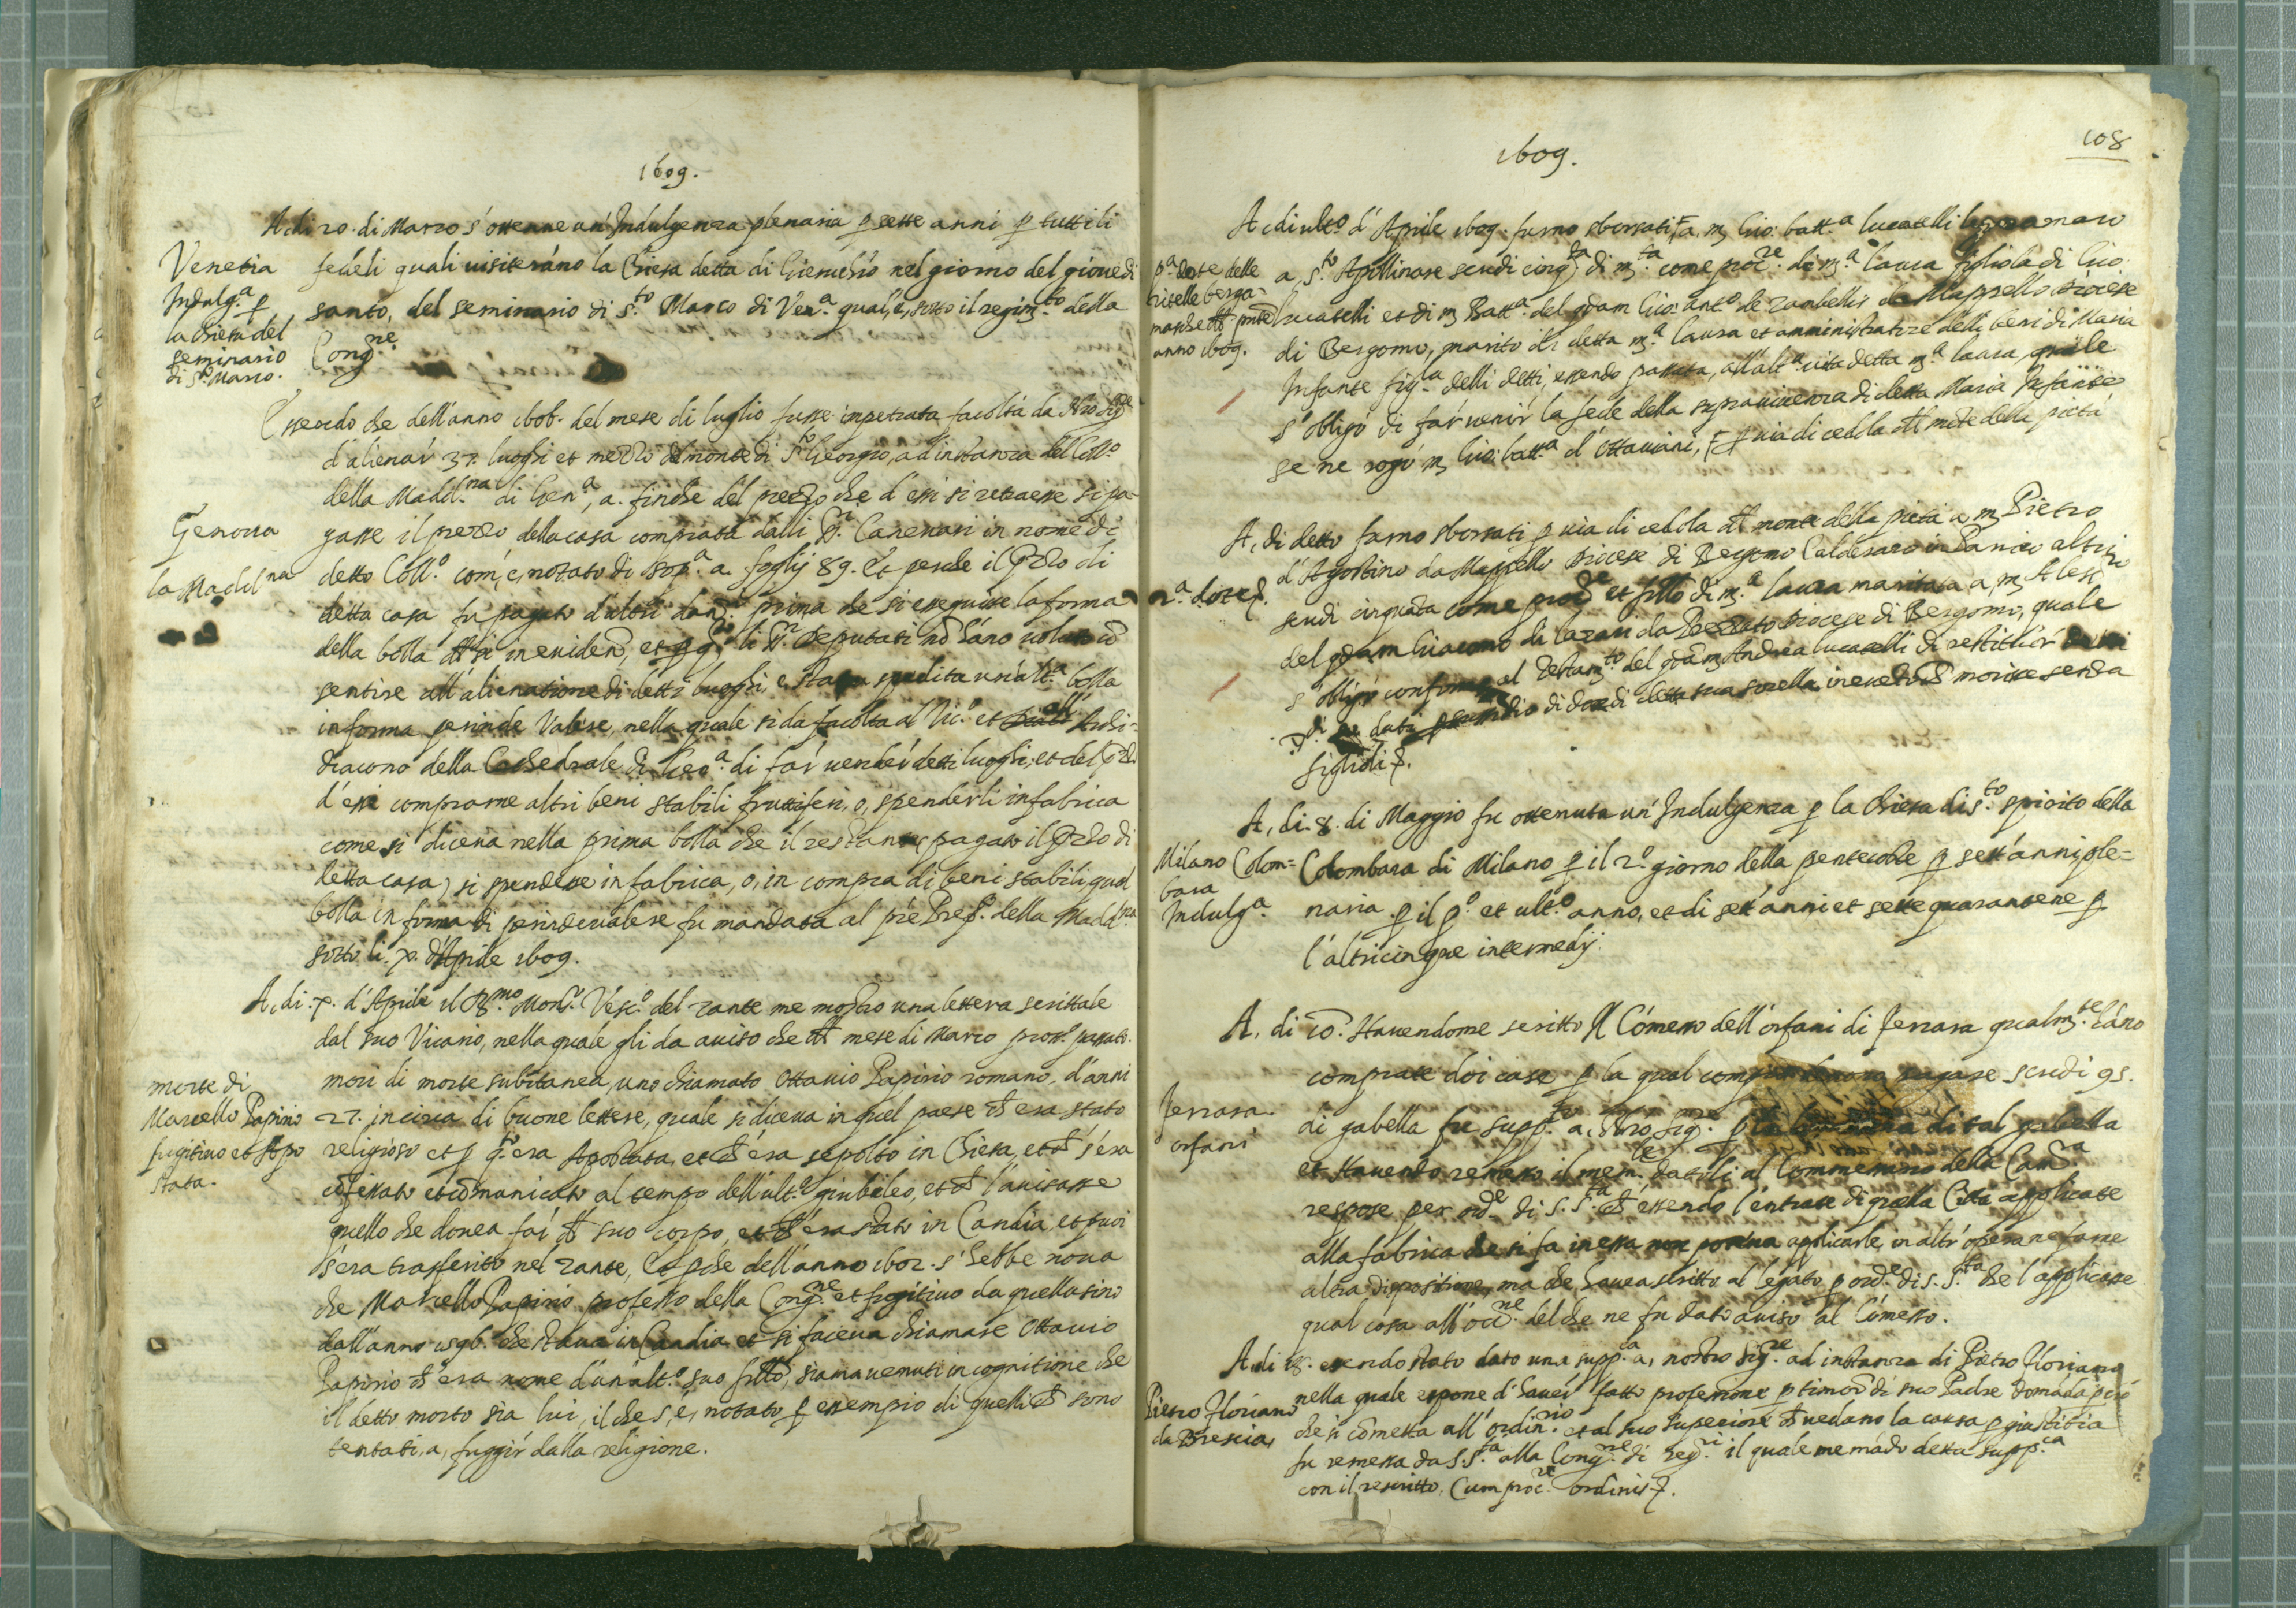 1609.
A, di 20. di Marzo s'ottenne un'Indulgenza plenaria p sette anni p tutti li
Venetia
Indulg.a p
la chiesa del
seminario
di S.to Marco.
fedeli quali visiterano la Chiesa detta di Gierusho nel giorno del giovedi
santo, del seminario di S.to Marco di Ven.a qual, è, sotto il regim.to della
Cong.ne
Essendo che dell'anno 1606. del mese di luglio fusse impetrata facoltà da Nro Sig.re
d'alienar 37. luoghi et mezzo del monte di S.to Georgio, ad instanza del Coll.o
della Madd.na di Gen.a, a finche del prezzo che d'essi si retraesse si pa-
Genova
la Madd.na
gasse il prezzo della casa comprata dalli SS.ri Canevari in nome di
detto Coll.o com, è, notato di sop.a a fogli 89. Et perche il przo di
detta casa fu pagato d'altri danri prima che si esequisse la forma
della bolla, et p q.to li SS.ri deputati nō hāno voluto cō
sentire all'alienatione di detti luoghi, è stata spedita un'alt.a bolla
in forma perinde Valere, nella quale si dà facoltà al Vic.o et all' Archi-
diacono della Cathedrale di Gen.a di far vender detti luoghi, et del przo
d'essi comprarne altri beni stabili fruttiferi, o, spenderli in fabrica
come si diceva nella prima bolla che il restante (pagato il przo di
detta casa) si spendesse in fabrica, o, in compra di beni stabili, qual
bolla in forma di perinde valere fu mandata al pre Prep.o della Madd.na
sotto li. 7. d'Aprile 1609.
A, di. 7. d'Aprile il R.mo Mons.r Vesc.o del zante me mostro una lettera scrittale
dal suo Vicario, nella quale gli da aviso che del mese di Marzo pross.o passato.
morte di
Marcello Papirio
fugitivo et Apo
stata.
morì di morte subitanea, uno chiamato Ottavio Papirio romano, d'anni
27. in circa di buone lettere, quale si diceva in quel paese ch' era stato
religioso et p q.to era Apostata, et ch' era sepolto in Chiesa, et ch' s'era
cōfessato et cōmunicato al tempo dell'ult.o giubileo, et ch' l'avisasse
quello che dovea far del suo corpo, et ch' era stato in Candia, et puoi
s'era trasferito nel zante, Et pche dell'anno 1602. s'hebbe nova
che Marcello Papirio professo della Cong.ne et fugitivo da quella sino
dall'anno 1596. che stava in Candia, et si faceva chiamare Ottavio
Papirio ch' era nome d'un alt.o suo frllo, siamo venuti in cognitione che
il detto morto sia lui, il che s, è, notato p essempio di quelli ch' sono
tentati, a, fuggir dalla religione.
108
1609.
A, di ult.o d'Aprile 1609. furno sborsati, a, m Gio: batt.a lucatelli
p.a dote delle
anno 1609.
a, S.to Apollinare scudi cinq.ta di m.ta come proc.re di m.a laura figliola di Gio:
lucatelli et di m Batt.a del qdam Gio: ant.o de zambellis da Mappello diocese
di Bergomo, marito di detta m.a laura et amministratore delli beni di Maria
Infante fig.la delli detti, essendo passata, all'alt.a vita detta m.a laura, quale
s'obligò di far venir la fede della sopravivenza di detta Maria Infante
se ne rogò m Gio: batt.a d'Ottaviani, p via di cedola del monte della pietà
A, di detto furno sborsati p via di cedola del monte della pietà a, m Pietro
2.a dote
d'Agostino da Mappello diocese di Bergomo Calderaro in Panico altri
scudi cinquāta come proc.re et frllo di m.a laura maritata a, m Aless.ro
del qdam Giacomo di lazari da Brembate diocese di Bergomo, quale
s'obligò conforme al testam.to del qdam Andrea lucatelli di restituir
dati p sussidio di dote di detta sua sorella in evento ch' morisse senza
figlioli.
A, di. 8. di Maggio fu ottenuta un'Indulgenza p la Chiesa di S.to spirito della
Milano Colom=
bara
Indulg.a
Colombara di Milano p il 2.o giorno della pentecoste p sett'anni ple=
naria p il p.o et ult.o anno, et di sett'anni et sette quarantene p
l'altri cinque intermedij.
A, di 10. Havendome scritto il Cōmesso dell'orfani di ferrara qualm.te hāno
Ferrara
orfani
comprate doi case p la qual compra pagare scudi 95.
di gabella fu supp.to a, Nro Sig.re p di tal gabella
et Havendo remesso il mem.le datoli al Commessario della Cam.a
respose per ord.e di S. S.tà ch' essendo l'entrate di quella Città applicate
alla fabrica che si fa in essa non poteva applicarle in altr'opera ne farne
altra dispositione, ma che haveva scritto al legato p ord.e di S. S.tà che l'applicasse
qual cosa all'occ.ne del che ne fu dato aviso al Cōmesso.
A, di 18. essendo stato dato una supp.ca a, nostro Sig.re ad instanza di Pietro Floriano
Pietro Floriano
da Brescia,
nella quale espone d'haver fatto professione p timor di suo Padre domāda però
che si cōmetta all'ordin.rio et al suo superiore ch' vedano la causa p giustitia
fu remessa da S. S.tà alla Cong.ne di reg.ri il quale me mādò detta supp.ca
con il rescritto. Cum proc.re ordinis.